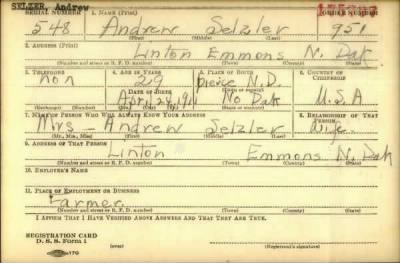 SELZER, Andrew
SERIAL NUMBER 1. NAME (Print) ORDER NUMBER
548 Andrew Selzler 951
(First) (Middle) (Last)
2. ADDRESS (Print)
Linton Emmons N. Dak
(Number and street or R. F. D. number) (Town) (County) (State)
3. TELEPHONE 4. AGE IN YEARS 5. PLACE OF BIRTH 6. COUNTRY OF CITIZENSHIP
non 29 Pierce N.D.
DATE OF BIRTH
No Dak U.S.A
(Exchange) (Number) (Mo.) (Day) (Yr.) (State or country)
7. NAME OF PERSON WHO WILL ALWAYS KNOW YOUR ADDRESS 8. RELATIONSHIP OF THAT PERSON
Mrs - Andrew Selzler Wife
(Mr., Mrs., Miss) (First) (Middle) (Last)
9. ADDRESS OF THAT PERSON
Linton Emmons N. Dak
(Number and street or R. F. D. number) (Town) (County) (State)
10. EMPLOYER'S NAME
11. PLACE OF EMPLOYMENT OR BUSINESS
Farmer
(Number and street or R. F. D. number) (Town) (County) (State)
I AFFIRM THAT I HAVE VERIFIED ABOVE ANSWERS AND THAT THEY ARE TRUE.
REGISTRATION CARD
D. S. S. Form 1 (over) (Registrant's signature)